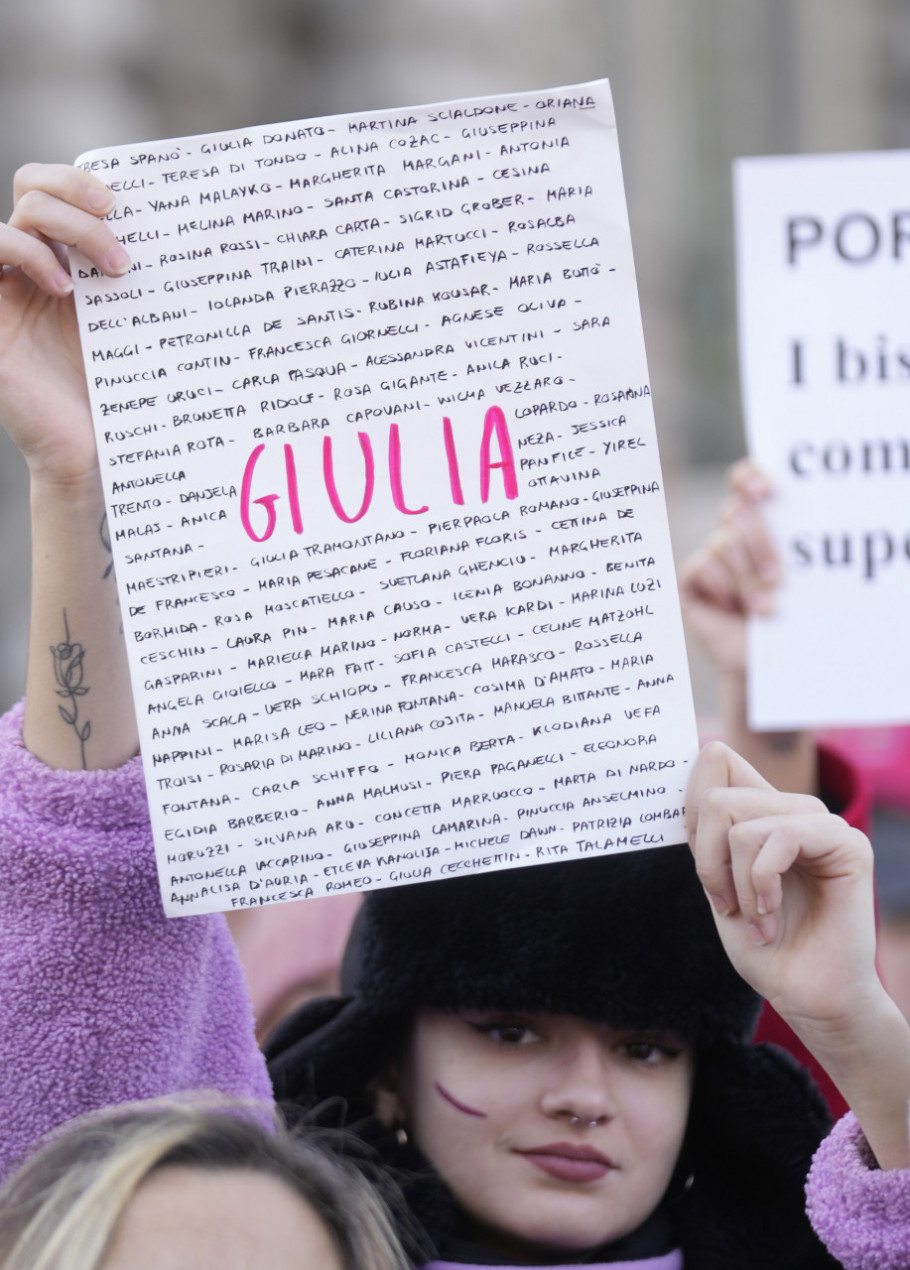 SPANÒ - GIULIA DONATO - MARTINA SCIALDONE - ORIANA
TERESA DI TONDO - ALINA COZAC - GIUSEPPINA
YANA MALAYKO - MARGHERITA MARGANI - ANTONIA
MELINA MARINO - SANTA CASTORINA - CESINA
ROSINA ROSSI - CHIARA CARTA - SIGRID GROBER - MARIA
SASSOLI - GIUSEPPINA TRAINI - CATERINA MARTUCCI - ROSALBA
DELL'ALBANI - IOLANDA PIERAZZO - IULIA ASTAFIEYA - ROSSELLA
MAGGI - PETRONILLA DE SANTIS - RUBINA KOUSAR - MARIA BUTTÒ -
PINUCCIA CONTIN - FRANCESCA GIORNELLI - AGNESE OLIVA -
ZENEPE URUCI - CARLA PASQUA - ALESSANDRA VICENTINI - SARA
RUSCHI - BRUNETTA RIDOLF - ROSA GIGANTE - ANILA RUCI -
STEFANIA ROTA - BARBARA CAPOVANI - WILMA VEZZARO -
ANTONELLA LOPARDO - ROSANNA
TRENTO - DANJELA NEZA - JESSICA
MALAJ - ANICA PANFILE - YIREL
SANTANA - OTTAVINA
GIULIA
MAESTRIPIERI - GIULIA TRAMONTANO - PIERPAOLA ROMANO - GIUSEPPINA
DE FRANCESCO - MARIA PESACANE - FLORIANA FLORIS - CETTINA DE
BORMIDA - ROSA MOSCATIELLO - SVETLANA GHENCIU - MARGHERITA
CESCHIN - LAURA PIN - MARIA CAUSO - ILENIA BONANNO - BENITA
GASPARINI - MARIELLA MARINO - NORMA - VERA ICARDI - MARINA LUZI
ANGELA GIOIELLO - MARA FAIT - SOFIA CASTELLI - CELINE MATZOHL
ANNA SCALA - VERA SCHIOPU - FRANCESCA MARASCO - ROSSELLA
NAPPINI - MARISA LEO - NERINA FONTANA - COSIMA D'AMATO - MARIA
TROISI - ROSARIA DI MARINO - LILIANA COJITA - MANUELA BITTANTE - ANNA
FONTANA - CARLA SCHIFFO - MONICA BERTA - KLODIANA VEFA
EGIDIA BARBERIO - ANNA MALMUSI - PIERA PAGANELLI - ELEONORA
MORUZZI - SILVANA ARU - CONCETTA MARRUOCCO - MARTA DI NARDO -
ANTONELLA IACCARINO - GIUSEPPINA LAMARINA - PINUCCIA ANSELMINO -
ANNALISA D'AURIA - ETLEVA KANOLIJA - MICHELE DAWN - PATRIZIA LOMBAR
FRANCESCA ROMEO - GIULIA CECCHETTIN - RITA TALAMELLI
POR
I bis
com
supe